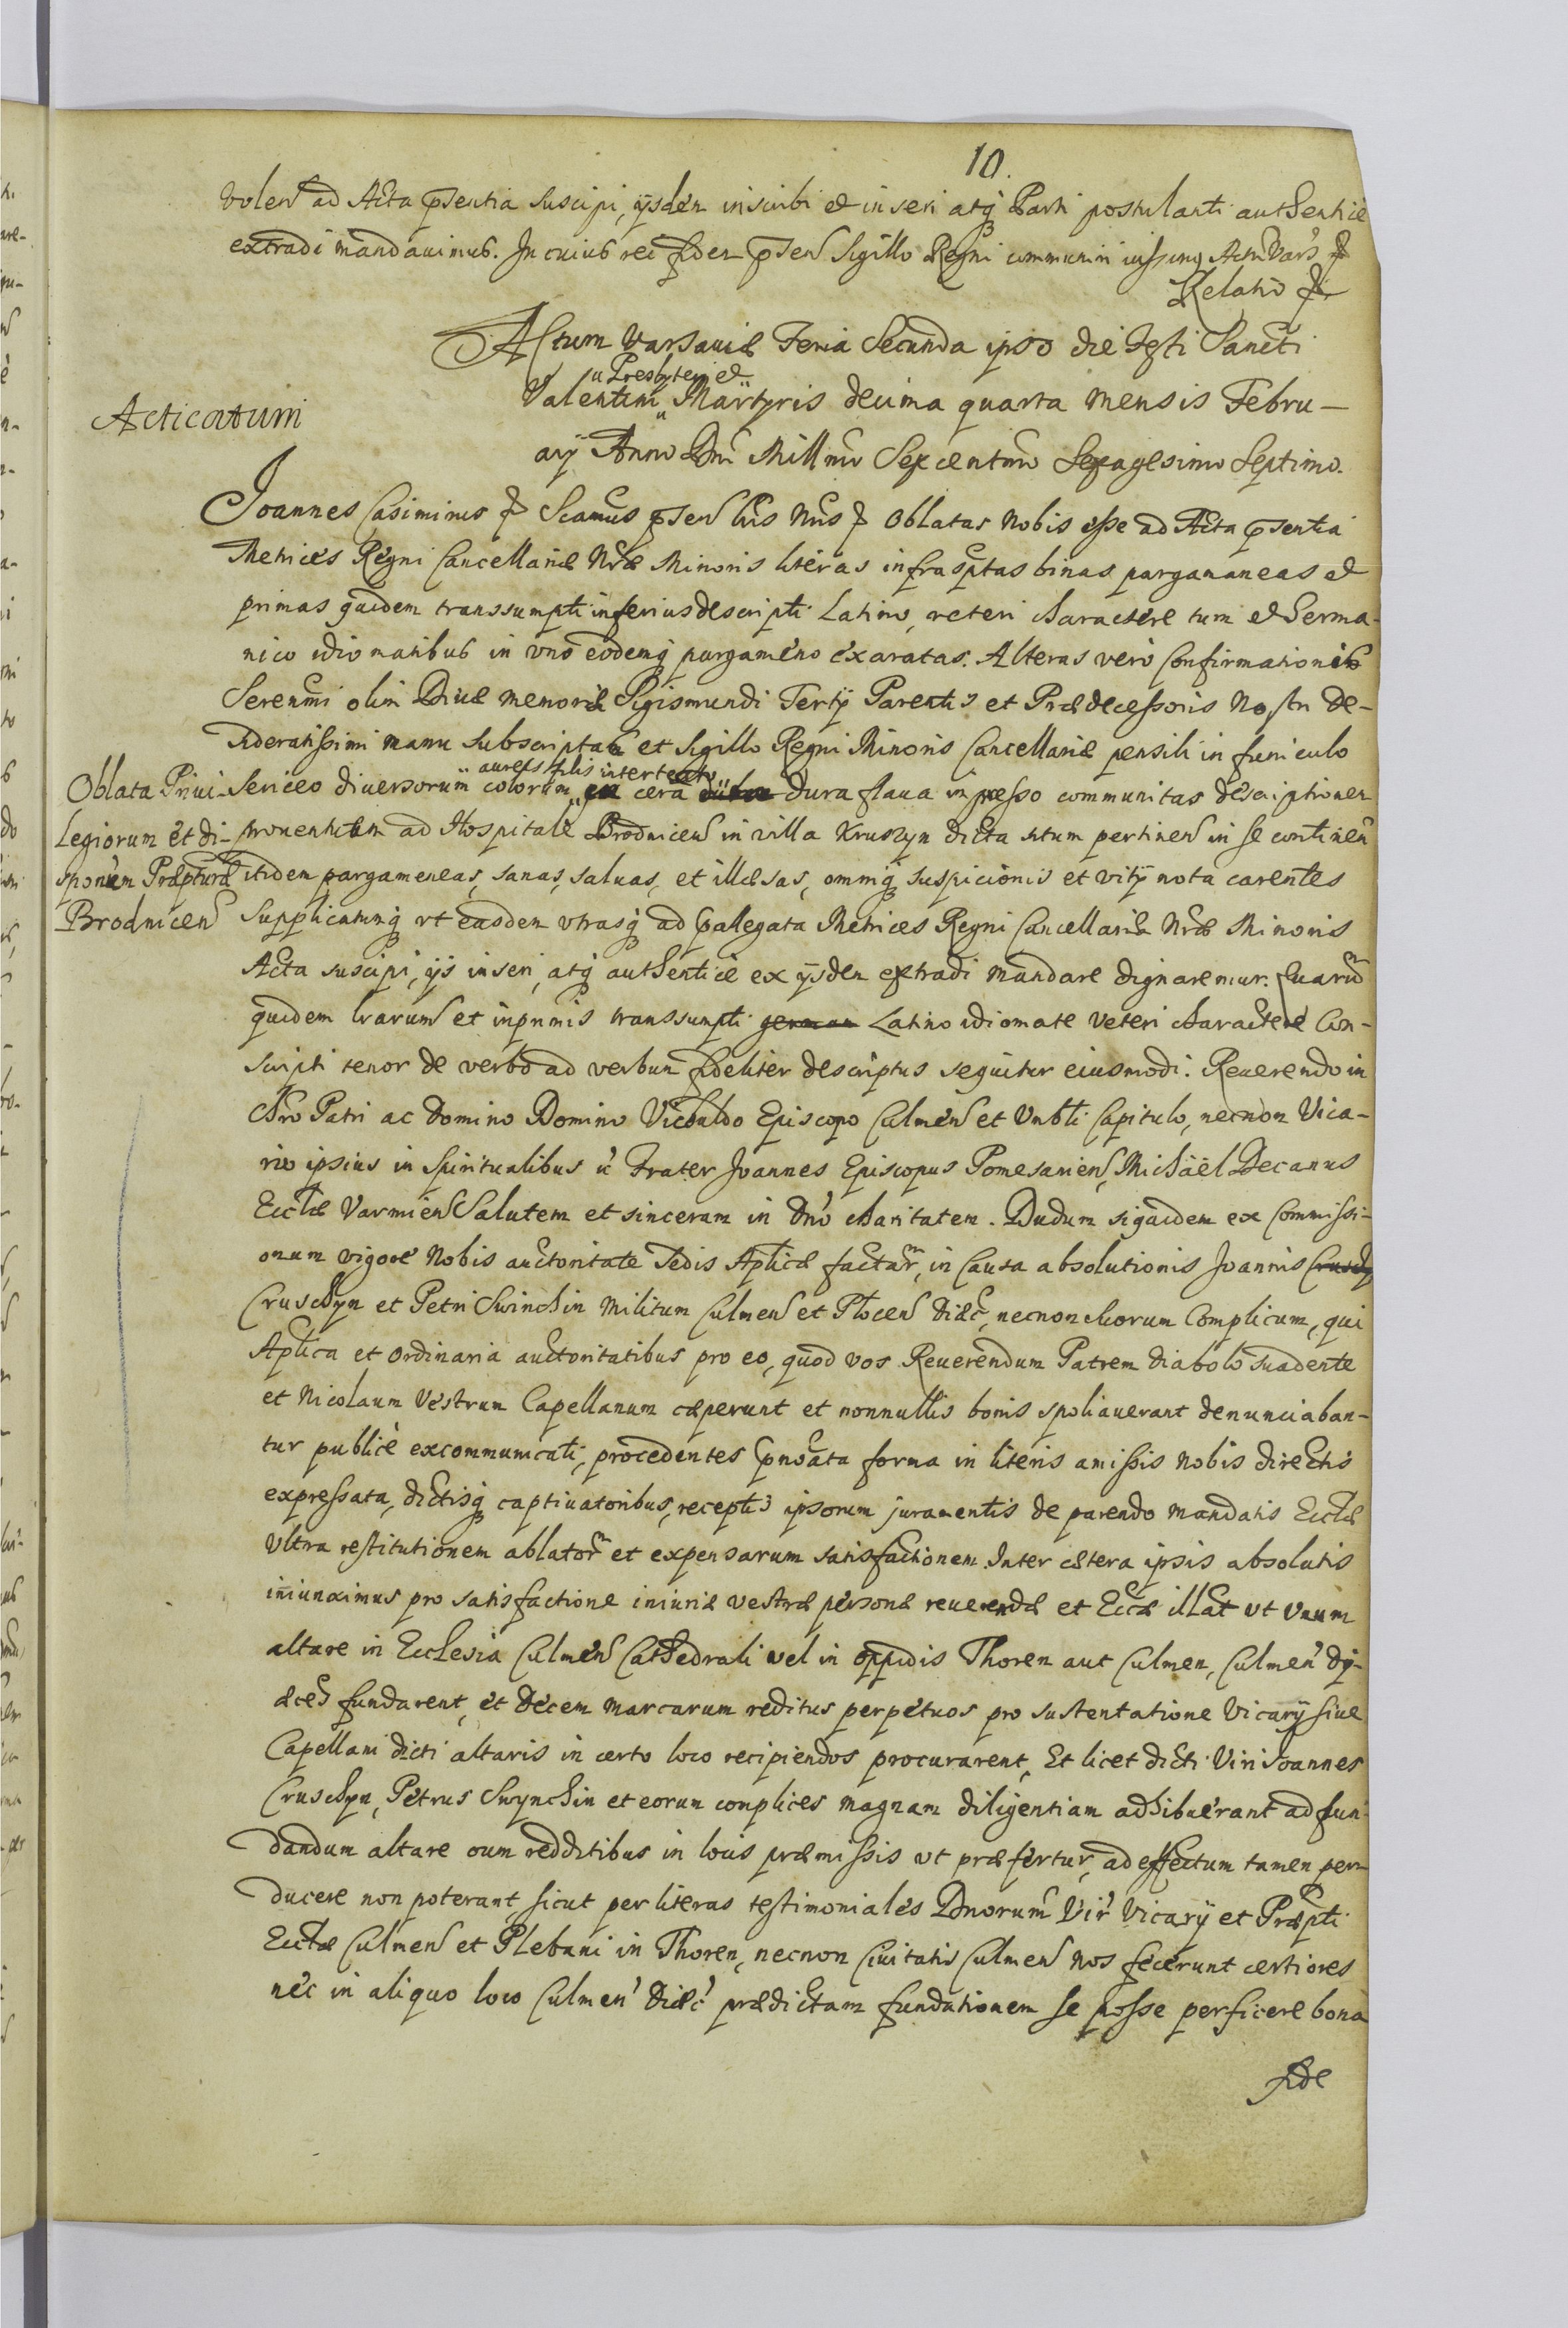 10.
volen ad Acta psentia suscipi, ijsdem inscribi et inseri atq Parti postulanti authentice
extradi mandauimus. In cuius rei fidem psen Sigillo Regni communiri iussimus Actu Vars &
Relatio &
Actum Varsauiæ Feria Secunda ipso die Festi Sancti
Valentini "Presbyteri et" Martyris decima quarta Mensis Febru-
Acticatum
arij Anno Dni Millmo Sexcentmo Sexagesimo Septimo.
Joannes Casimirus & Scamus psen lris Nris & Oblatas Nobis esse ad Acta psentia
Metrices Regni Cancellariæ Nræ Minoris literas infrasptas binas pargameneas et
primas quidem transsumpti inferius descripti Latino, veteri charactere tum et Germa-
nico idiomatibus in vno eodemq pargameno exaratas. Alteras vero Confirmationis
Serenmi olim Diuæ memoriæ Sigismundi Tertij Parentis et Prædecessoris Nostri De-
sideratissimi manu subscriptas et Sigillo Regni Minoris Cancellariæ pensili in funiculo
Oblata Priui-
legiorum et di-
sponem Præpturæ
Brodnicen
sericeo diuersorum colorum "aureis filis intertexto" cera dura flaua impresso communitas descriptionem
prouentuum ad Hospitale Brodnicen in villa Kruszyn dicta situm pertinen in se continen
itidem pargameneas, sanas, saluas, et illæsas, omniq suspicionis et vitij nota carentes
Supplicatumq vt easdem vtrasq ad pallegata Metrices Regni Cancellariæ Nræ Minoris
Acta suscipi, ijs inseri, atq authentice ex ijsdem extradi mandare dignaremur. Quarum
quidem lrarum et inprimis transsumpti german Latino idiomate veteri charactere Con-
scripti tenor de verbo ad verbum fideliter descriptus sequitur eiusmodi. Reuerendo in
Chro Patri ac Domino Domino Vicbaldo Episcopo Culmen et Vnbli Capitulo, necnon Vica-
rio ipsius in Spiritualibus Frater Joannes Episcopus Pomesanien, Michäel Decanus
Ecclæ Varmien Salutem et sinceram in Dno charitatem. Dudum siquidem ex Commissi-
onum vigore Nobis auctoritate Sedis Aplicæ factar, in Causa absolutionis Joannis
Cruschyn et Petri Swinchin Militum Culmen et Plocen Diæc, necnon eorum Complicum, qui
Aplica et ordinaria auctoritatibus pro eo, quod vos Reuerendum Patrem diabolo suadente
et Nicolaum Vestrum Capellanum cæperunt et nonnullis bonis spoliauerant denunciaban-
tur publicè excommunicati, procedentes forma in literis amissis Nobis directis
expressata, dictisq captiuatoribus, receptis ipsorum juramentis de parendo mandatis Ecclæ
Vltra restitutionem ablator et expensarum satisfactionem. Inter cætera ipsis absolutis
iniunximus pro satisfactione iniuriæ vestræ personæ reuerendæ et Eccæ illat vt vnum
altare in Ecclesia Culmen Cathedrali vel in oppidis Thoren aut Culmen, Culmen dy-
æces fundarent, et Decem marcarum reditus perpetuos pro sustentatione Vicarij siue
Capellani dicti altaris in certo loco recipiendos procurarent, Et licet dicti Viri Joannes
Cruschyn, Petrus Swynchin et eorum complices magnam diligentiam adhibuerant ad fun-
dandum altare cum redditibus in locis præmissis vt præfertur, ad effectum tamen per-
ducere non poterant, sicut per literas testimoniales Dnorum Vir Vicarij et Præpti
Ecclæ Culmen et Plebani in Thoren, necnon Ciuitatis Culmen nos fecerunt certiores
nec in aliquo loco Culmen Diæc prædictam fundationem se posse perficere bona
fide